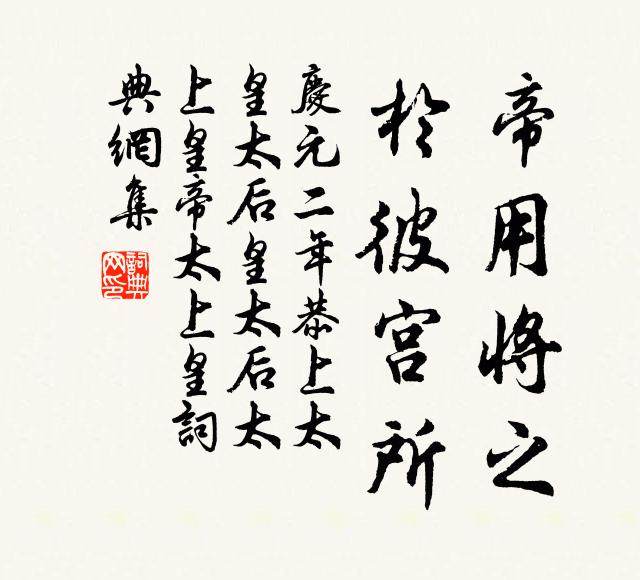 帝用將之
於彼宮所
慶元二年恭上太
皇太后皇太后太
上皇帝太上皇詞
典網集
詞典網印